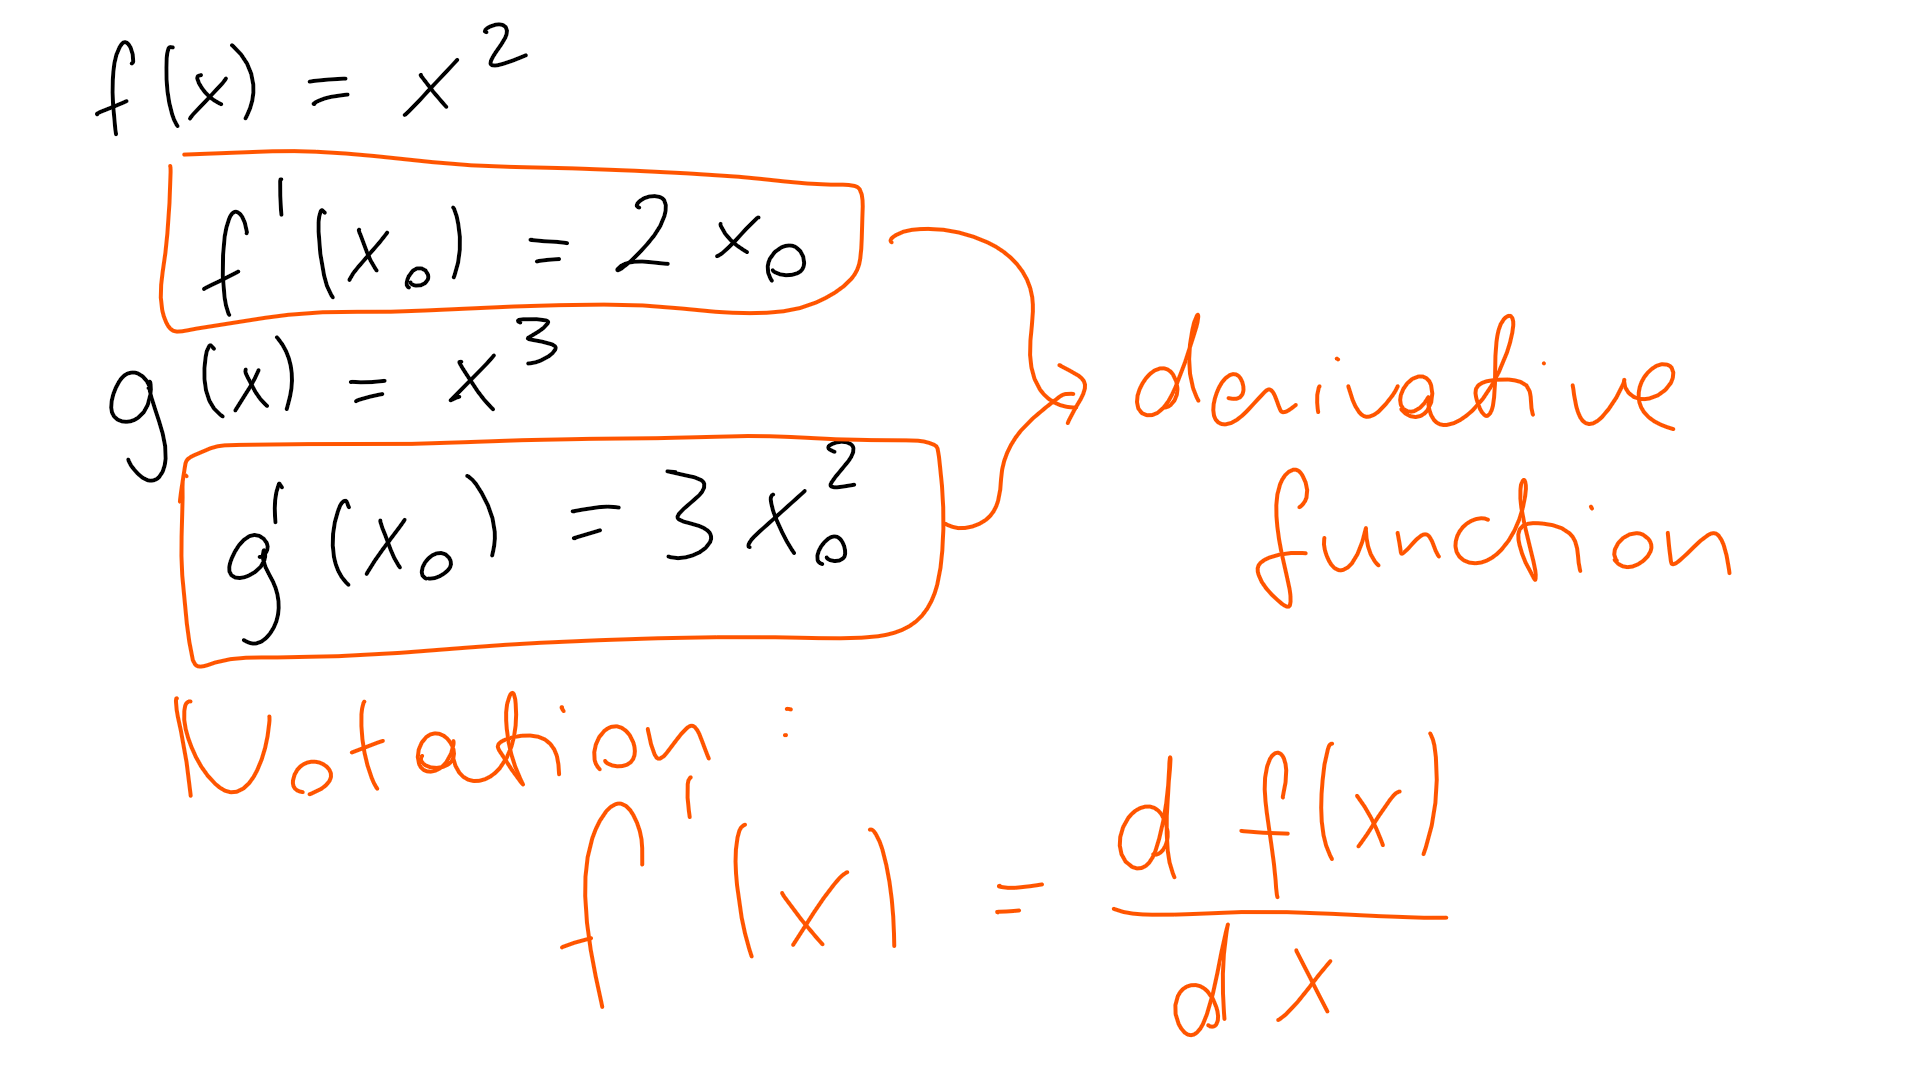 f(x) = x²
f'(x₀) = 2x₀
g(x) = x³
g'(x₀) = 3x₀²
derivative
function
Notation:
f'(x) = d f(x) / d x